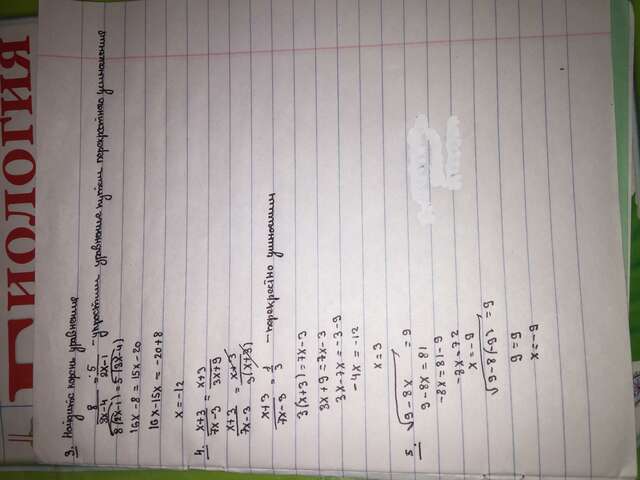 БИОЛОГИЯ
3. Найдите корни уравнение
8/3x-4 = 5/2x-1 - упростим уравнение путём перекрёстного умножение
8(2x-1) = 5(3x-4)
16x-8 = 15x-20
16x-15x = -20+8
x = -12
4. x+3/7x-3 = x+3/3x+9
x+3/7x-3 = x+3/3(x+3)
x+3/7x-3 = 1/3 - перекрёстно умножим
3(x+3) = 7x-3
3x+9 = 7x-3
3x-7x = -3-9
-4x = -12
x = 3
5. √9-8x = 9
9-8x = 81
-8x = 81-9
-8x = 72
x = -9
√9-8(-9) = 9
9 = 9
x = -9